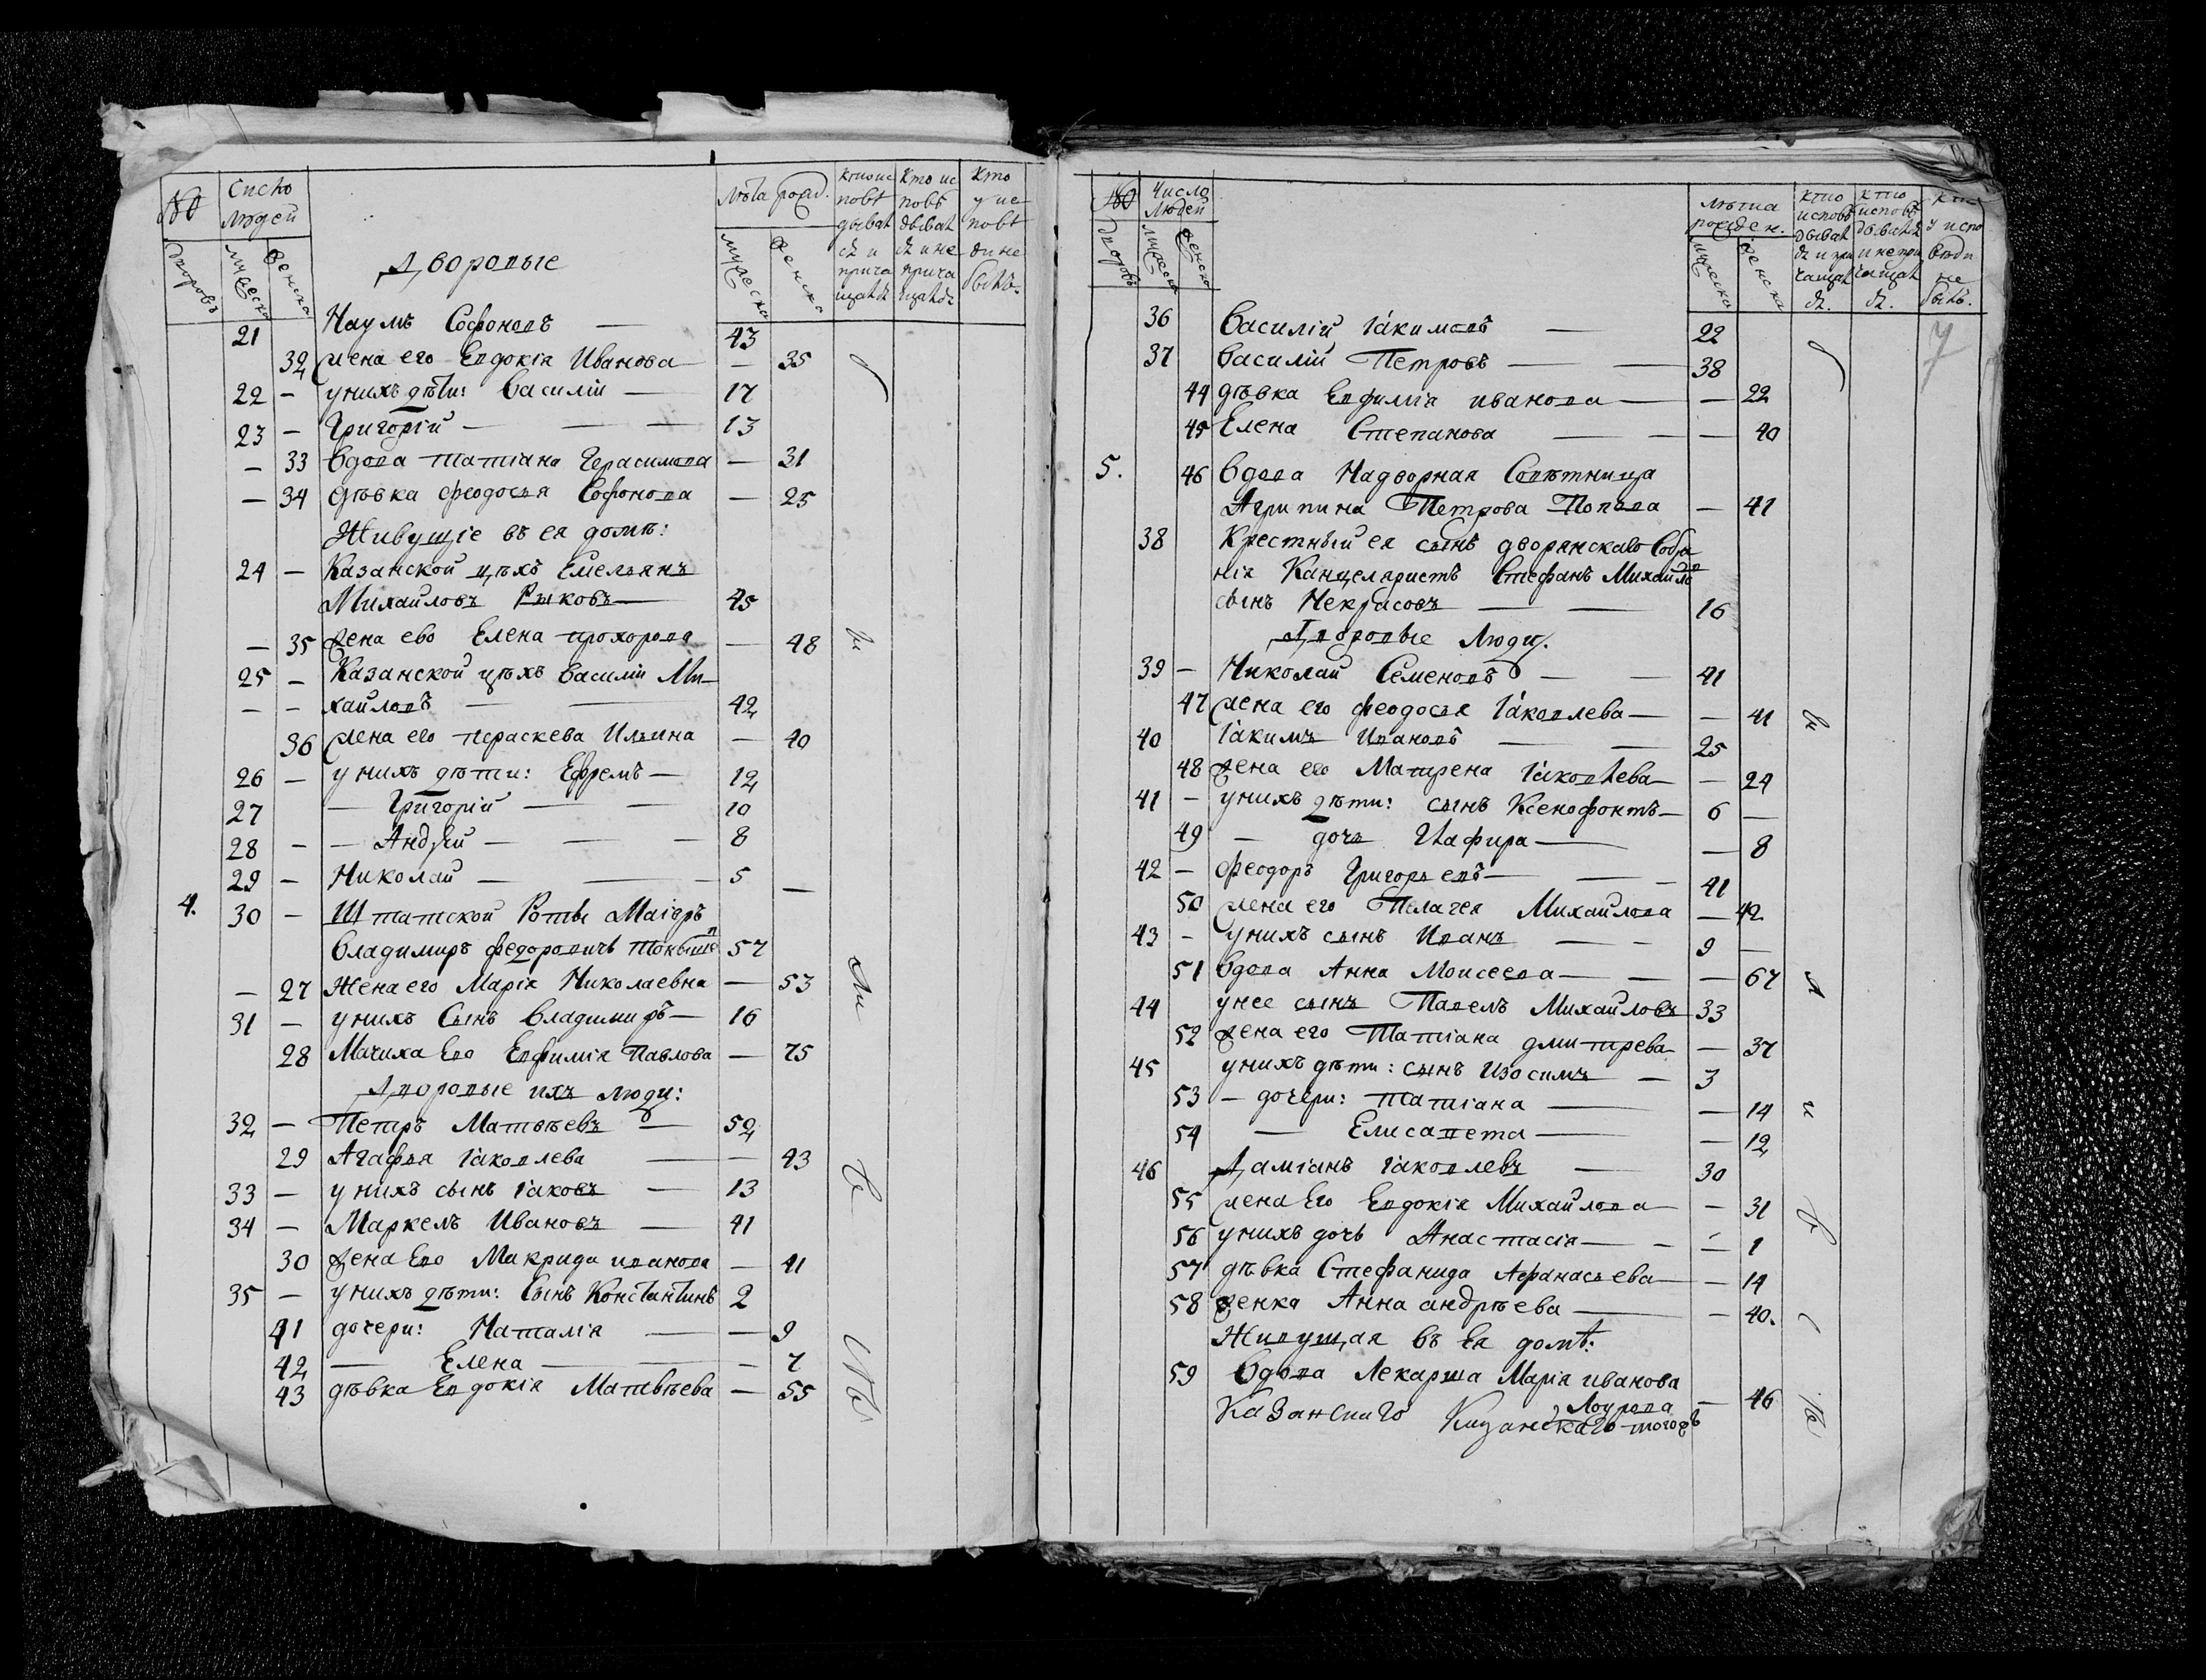 №
Число людей
дворовъ
мужеска
женска
Дворовые
Лѣта рожд.
мужеска
женска
кто ис повѣ дыват ся и прича щатся
Кто ис повѣ дыват ся и не прича щатся
Кто у ис повѣ ди не былъ.
21 Наумъ Софоновъ — 43
32 жена его Евдокія Иванова — 35
22 — у нихъ дѣти: Василій — 17
23 — Григорій — 13
— 33 вдова Татіана Герасимова — 31
— 34 дѣвка Феодосья Софонова — 25
Живущіе въ ея домѣ:
24 — Казанской цѣхъ Емельянъ
Михайловъ Рыковъ — 45
— 35 жена ево Елена Прохорова — 48
25 — Казанской цѣхъ Василій Ми-
— — хайловъ — 42
36 жена его Параскева Ильина — 40
26 — у нихъ дѣти: Ефремъ — 12
27 — Григорій — 10
28 — — Андрей — 8
29 — Николай — 5 —
4. 30 — Штатской Роты Маіоръ
Владимиръ Федоровичъ 57
— 27 Жена его Марія Николаевна — 53
31 — у нихъ Сынъ Владимиръ — 16
28 Мачиха Ево Евфимія Павлова — 75
Дворовые ихъ люди:
32 — Петръ Матвѣевъ — 52
29 Агафья Іаковлева — 43
33 — у нихъ сынъ Іаковъ — 13
34 — Маркелъ Ивановъ — 41
30 жена Ево Макрида Иванова — 41
35 — у нихъ дѣти: Сынъ Константинъ 2
41 дочери: Наталія — 9
42 — Елена — 7
43 дѣвка Евдокія Матвѣева — 55
№
Число Людей
дворовъ
мужеска
женска
лѣта рожден.
мужеска
женска
кто исповѣ дыват ся и при чащат ся.
кто исповѣ дыватся и не при чащат ся.
Кто у испо вѣди не былъ.
7
36 Василій Іакимовъ — 22
37 Василій Петровъ — 38
44 дѣвка Евфимія Иванова — 22
45 Елена Степанова — 40
5. 46 Вдова Надворная Совѣтница
Агрипина Петрова Попова — 41
38 Крестный ея сынъ дворянскаго Собра
нія Канцеляристъ Стефанъ Михайловъ
сынъ Некрасовъ — 16
Дворовые Люди.
39 — Николай Семеновъ — 41
47 жена его Феодосья Іаковлева — 41
40 Іакимъ Ивановъ — 25
48 жена его Матрена Іаковлева — 24
41 — у нихъ дѣти: сынъ Ксенофонтъ — 6 —
49 — дочь Глафира — 8
42 — Феодоръ Григорьевъ — 41
50 жена его Пелагея Михайлова — 42
43 — у нихъ сынъ Иванъ — 9 —
51 вдова Анна Моисеева — 67
44 у нее сынъ Павелъ Михайловъ 33
52 жена его Татіана Дмитрева — 37
45 у нихъ дѣти: сынъ Изосимъ — 3
53 — дочери: Татіана — 14
54 — Елисавета — 12
46 Даміанъ Іаковлевъ — 30
55 жена Его Евдокія Михайлова — 31
56 у нихъ дочь Анастасія — 1
57 дѣвка Стефанида Афанасьева — 14
58 женка Анна Андрѣева — 40.
Живущая въ Ея домѣ:
59 Вдова Лекарша Марія Иванова
— 46
Казанскаго Казанскаго